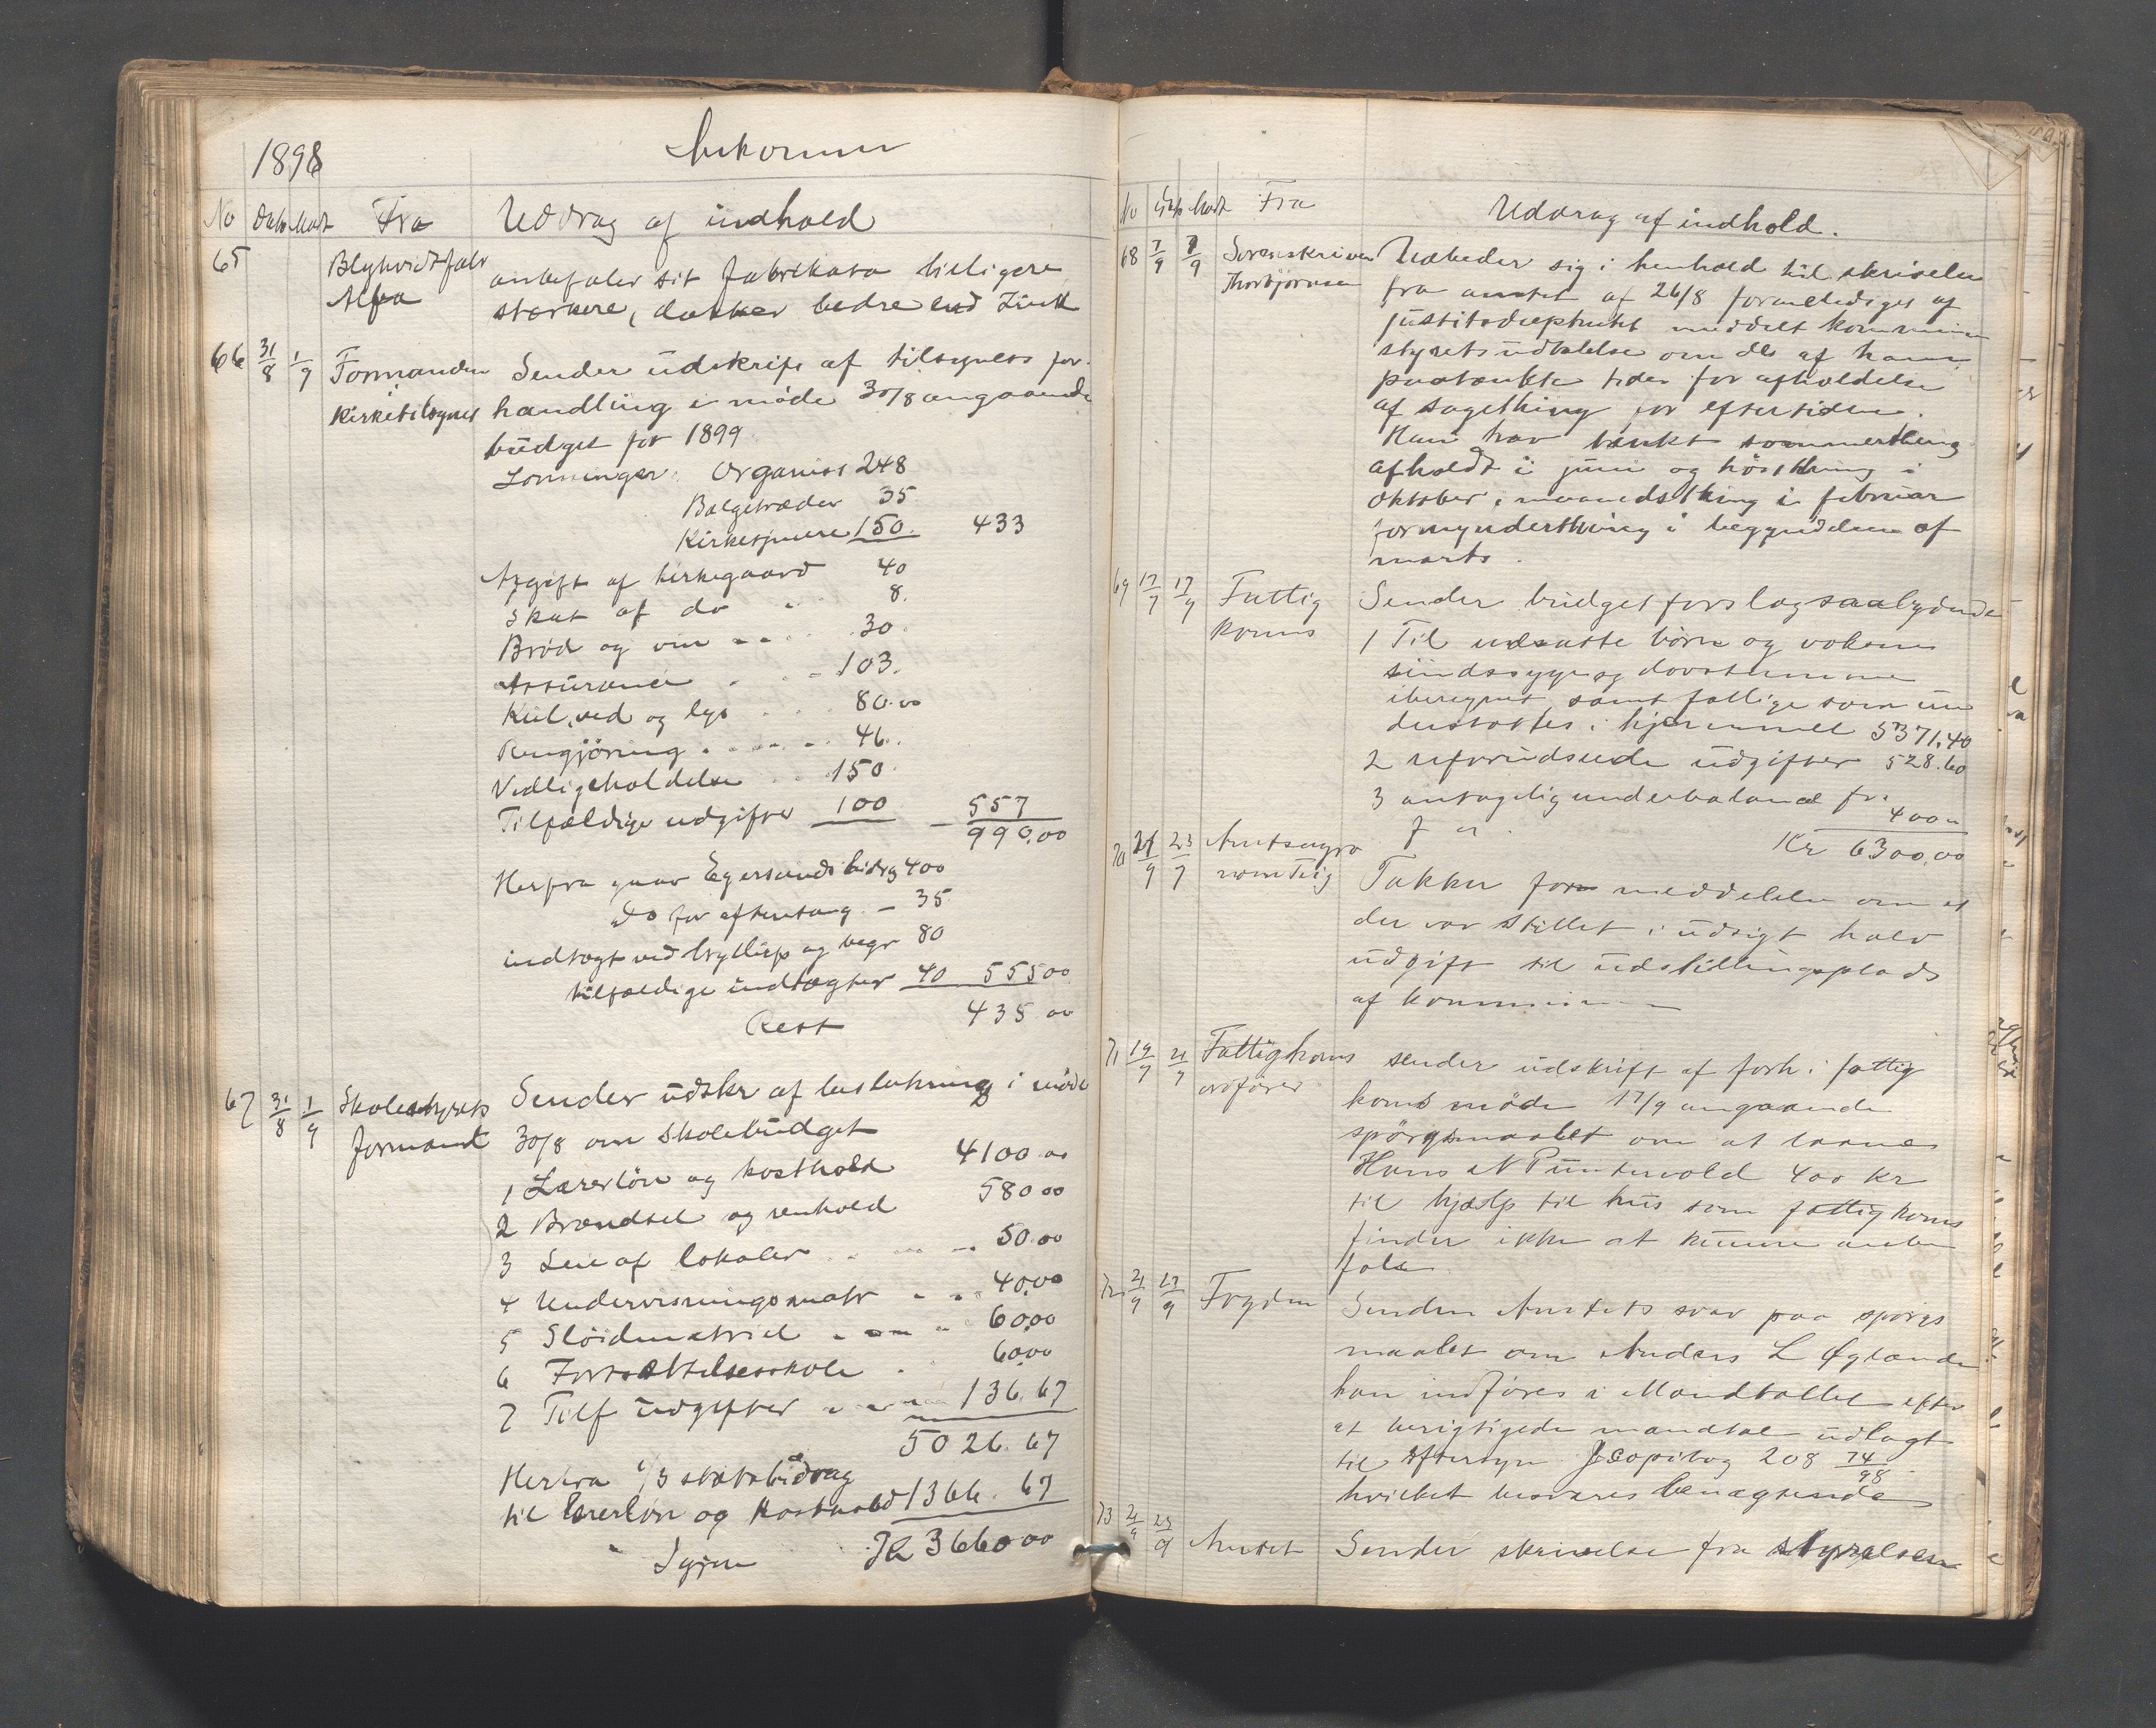 1898
Inkomne
No Dato Modt Fra Uddrag af indhold
65 Blyhvidtfabr anbefaler sit fabrikata billigere
Alfa stærkere, dækker bedre end Zink
66 31/8 1/9 Formanden Sender udskrift af tilsynets for-
Kirketilsynet handling i møde 30/8 angaaende
budget for 1899
Lønninger: Organist 248
Bælgetræder 35
Kirketjenere 150. 433
Afgift af kirkegaard 40
Skat af do 8.
Brød og vin 30
Assurance 103.
Kul, ved og lys 80.00
Rengjöring 46.
Vedligeholdelse 150
Tilfældige udgifter 100 557
990.00
Herfra gaar Egersunds bidrag 400
do for aftensang - 35
indtægt ved bryllup og begr 80
tilfældige indtægter 40 555 00
Rest 435 00
67 31/8 1/9 Skolestyrets Sender udskr af beslutning i møde
formand 30/8 om skolebudget
1 Lærerløn og kosthold 4100 00
2 Brændsel og renhold 580 00
3 Leie af lokaler 50.00
4 Undervisningsmatr 40.00
5 Slöidmatriel 60.00
6 Fortsættelsesskole 60.00
7 Tilf udgifter 136.67
5026.67
Herfra 1/3 statsbidrag
til lærerløn og kosthold 1366.67
Igjen Kr 3660 00
No Dato Modt Fra Uddrag af indhold.
68 7/9 7/9 Sorenskriver Udbeder sig i henhold til skrivelse
Thorbjörnsen fra amtet af 26/8 foranlediget af
justitsdeptmtet meddelt kommune
styrets udtalelse om de af ham
paatænkte tider for afholdelse
af sagething for eftertiden.
Han har tænkt sommerthing
afholdt i juni og höstthing i
oktober, maanedsthing i februar
formynderthing i begyndelsen af
marts.
69 17/9 17/9 Fattig Sender budgetforslag saalydende
koms 1 Til udsatte børn og voksne
sindssyge og døvstumme
iberegnet, samt fattige som un
derstøttes i hjemmet 5371.40
2 uforudseede udgifter 528.60
3 antagelig underbalance fra
f a 400 "
Kr 6300.00
70 21/9 23/9 Amtsagro Takker for meddelelse om at
nom Teig der var stillet i udsigt halv
udgift til udstillingsplads
af kommunen
71 19/9 21/9 Fattigkoms sender udskrift af forh i fattig
ordfører koms møde 17/9 angaaende
spörgsmaalet om at laane
Hans N Puntervold 400 kr
til hjælp til hus som fattigkoms
finder ikke at kunne anbe
fale
72 21/9 23/9 Fogden Sender Amtets svar paa spörgs
maalet om Anders L Øglænde
kan indføres i Mandtallet efter
at berigtigede mandtal udlagt
til eftersyn Jr copibog 208 74/98
hvilket besvares benægtende
73 21/9 23/9 Amtet Sender skrivelse fra styrelsen